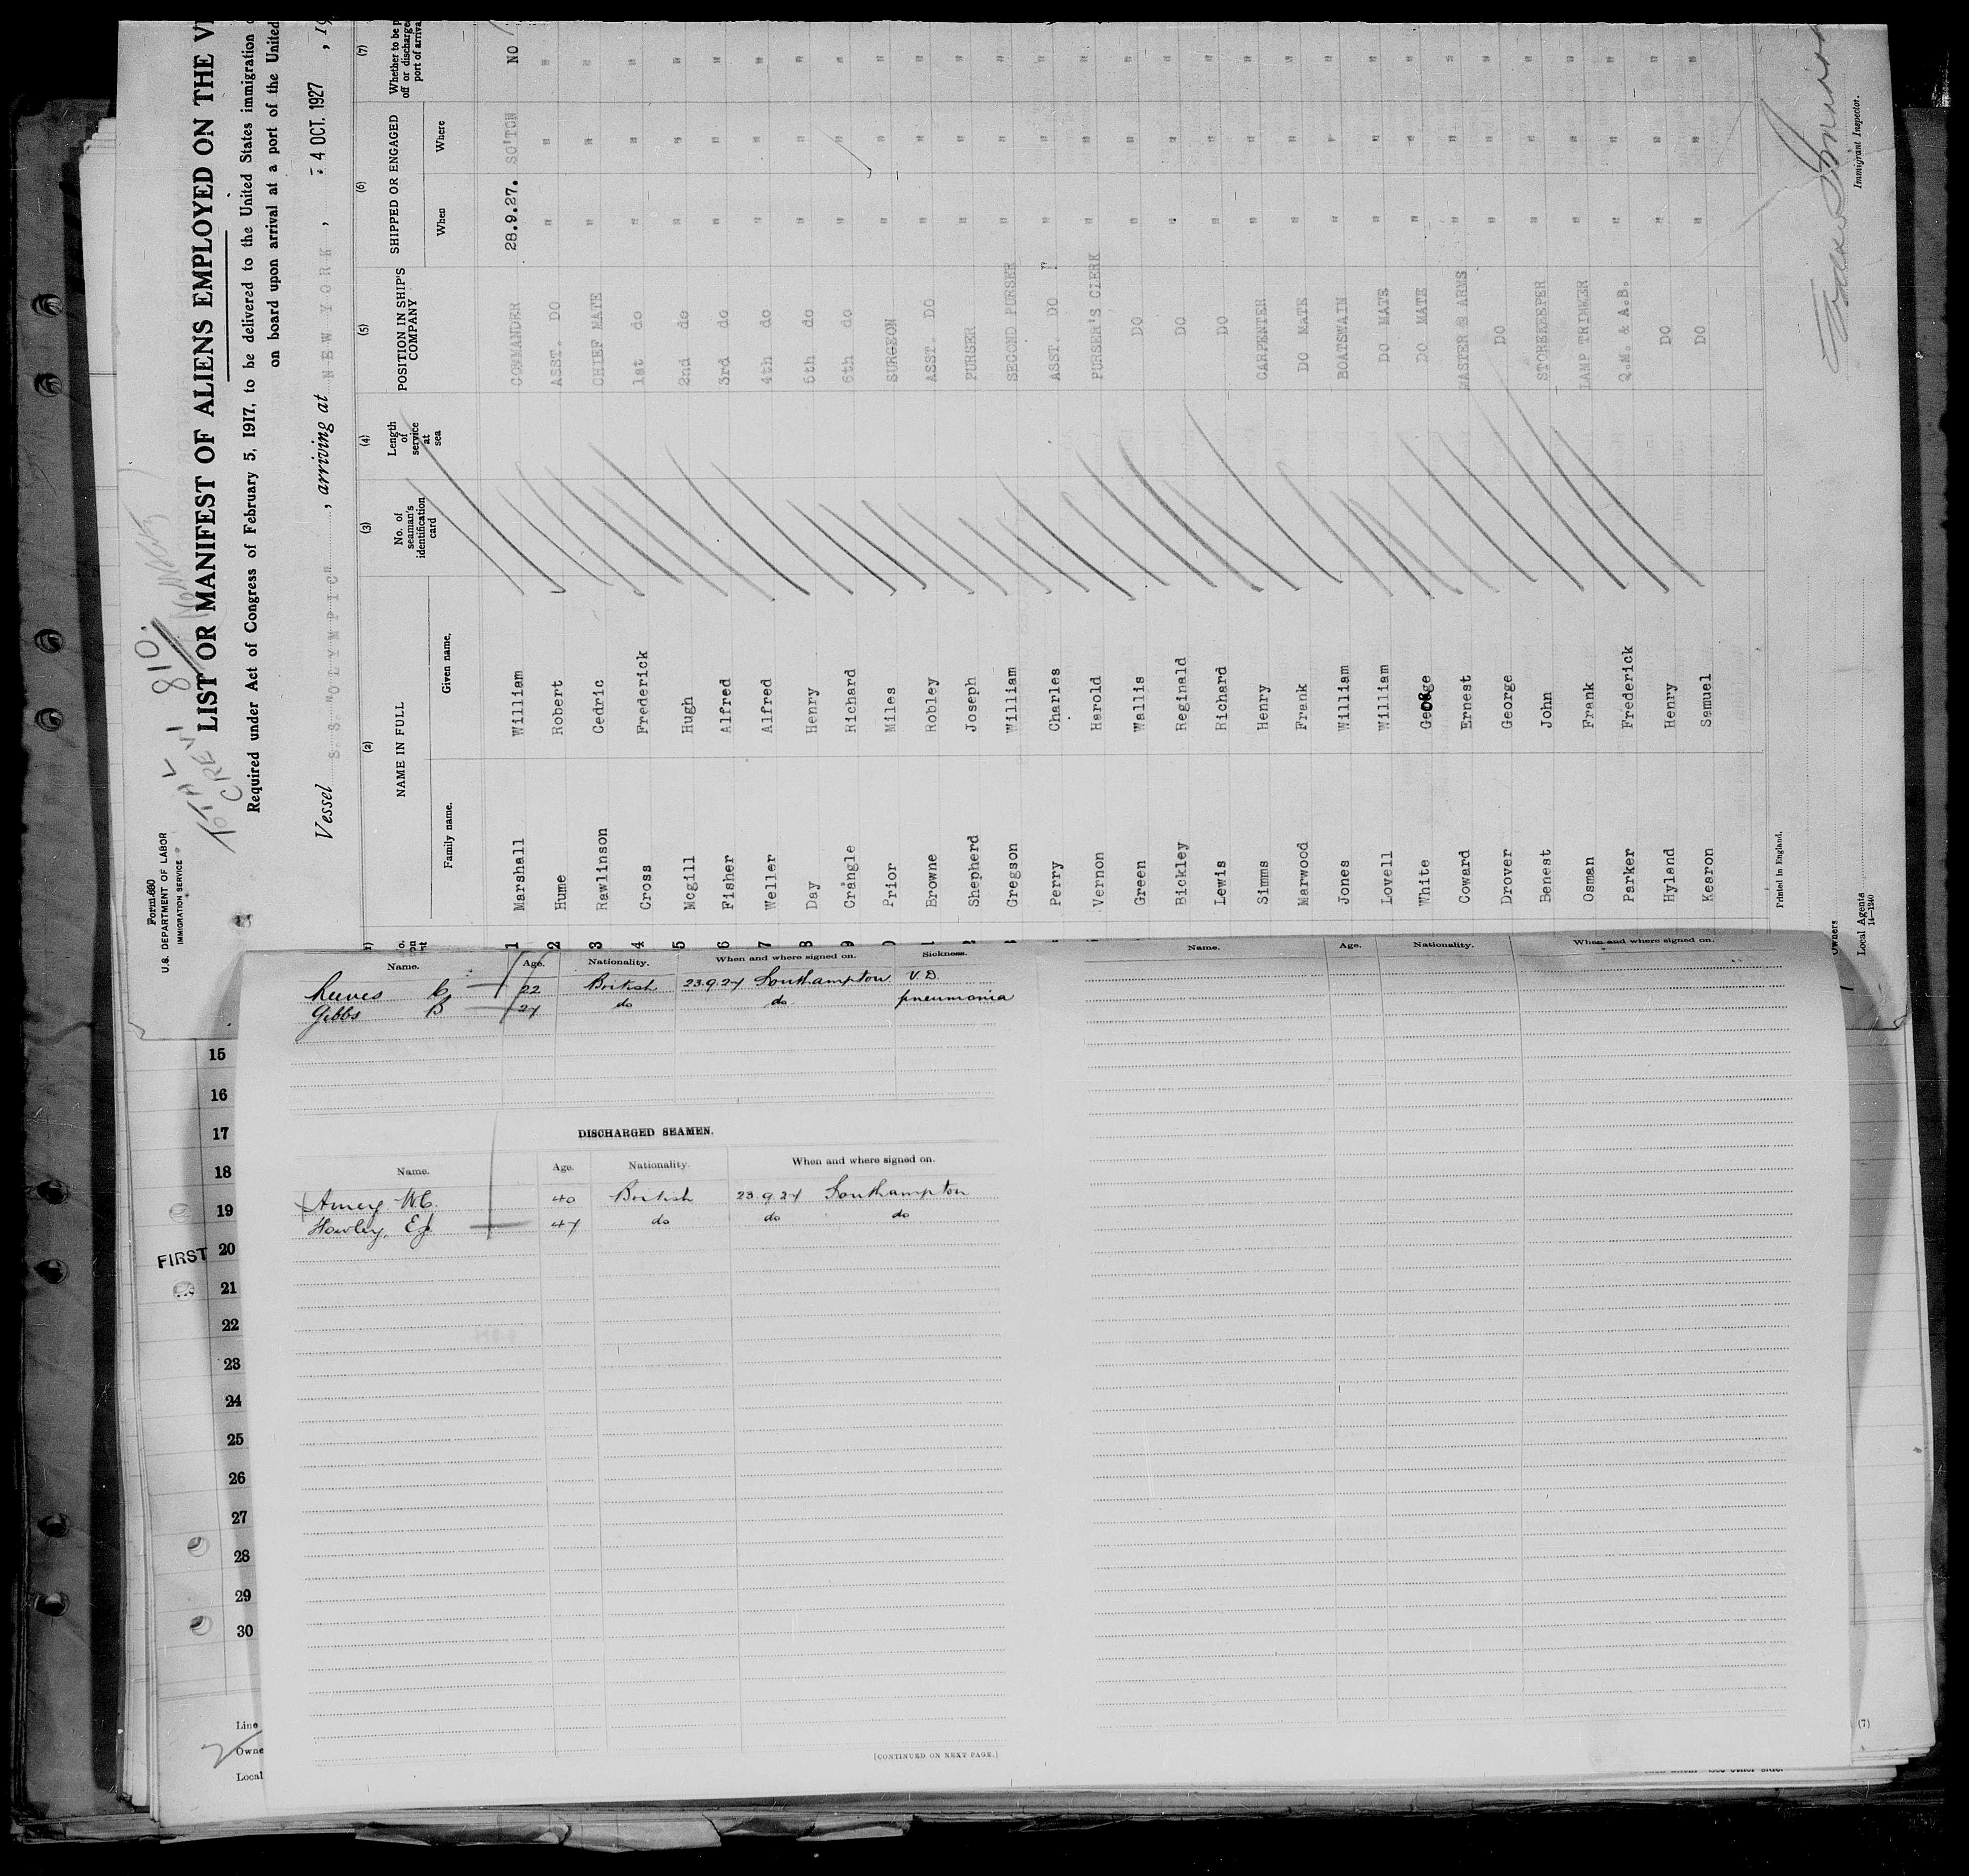 Form 680
U.S. DEPARTMENT OF LABOR
IMMIGRATION SERVICE
TOTAL CREW 810.
LIST OR MANIFEST OF ALIENS EMPLOYED ON THE
Required under Act of Congress of February 5, 1917, to be delivered to the United States immigration
on board upon arrival at a port of the United
Vessel S.S. "OLYMPIC", arriving at NEW YORK, 4 OCT. 1927, 19
(2) (3) (4) (5) (6) (7)
NAME IN FULL No. of seaman's identification card Length of service at sea POSITION IN SHIP'S COMPANY SHIPPED OR ENGAGED Whether to be off or discharged port of arrival
Family name. Given name. When Where
1 Marshall William COMMANDER 28.9.27. SO'TON NO
2 Hume Robert ASST. DO " " "
3 Rawlinson Cedric CHIEF MATE " " "
4 Cross Frederick 1st do " " "
5 Mcgill Hugh 2nd do " " "
6 Fisher Alfred 3rd do " " "
7 Weller Alfred 4th do " " "
8 Day Henry 5th do " " "
9 Crangle Richard 6th do " " "
Prior Miles SURGEON " " "
Browne Robley ASST. DO " " "
Shepherd Joseph PURSER " " "
Gregson William SECOND PURSER " " "
Perry Charles ASST. DO " " "
Vernon Harold PURSER'S CLERK " " "
Green Wallis DO " " "
Bickley Reginald DO " " "
Lewis Richard DO " " "
Simms Henry CARPENTER " " "
Marwood Frank DO MATE " " "
Jones William BOATSWAIN " " "
Lovell William DO MATE " " "
White George DO MATE " " "
Coward Ernest MASTER @ ARMS " " "
Drover George DO " " "
Benest John STOREKEEPER " " "
Osman Frank LAMP TRIMMER " " "
Parker Frederick Q.M. & A.B. " " "
Hyland Henry DO " " "
Kearon Samuel DO " " "
Printed in England.
Owners
Local Agents
14—1240
Immigrant Inspector.
Name. Age. Nationality. When and where signed on. Sickness.
Reeves C 22 British 23.9.27 Southampton V.D.
Gibbs B 27 do do pneumonia
DISCHARGED SEAMEN.
Name. Age. Nationality. When and where signed on.
Amey W.C. 40 British 23.9.27 Southampton
Howley, E.J. 47 do do do
[CONTINUED ON NEXT PAGE.]
Name. Age. Nationality. When and where signed on.
15
16
17
18
19
FIRST 20
21
22
23
24
25
26
27
28
29
30
Line
Owne
Local
(7)